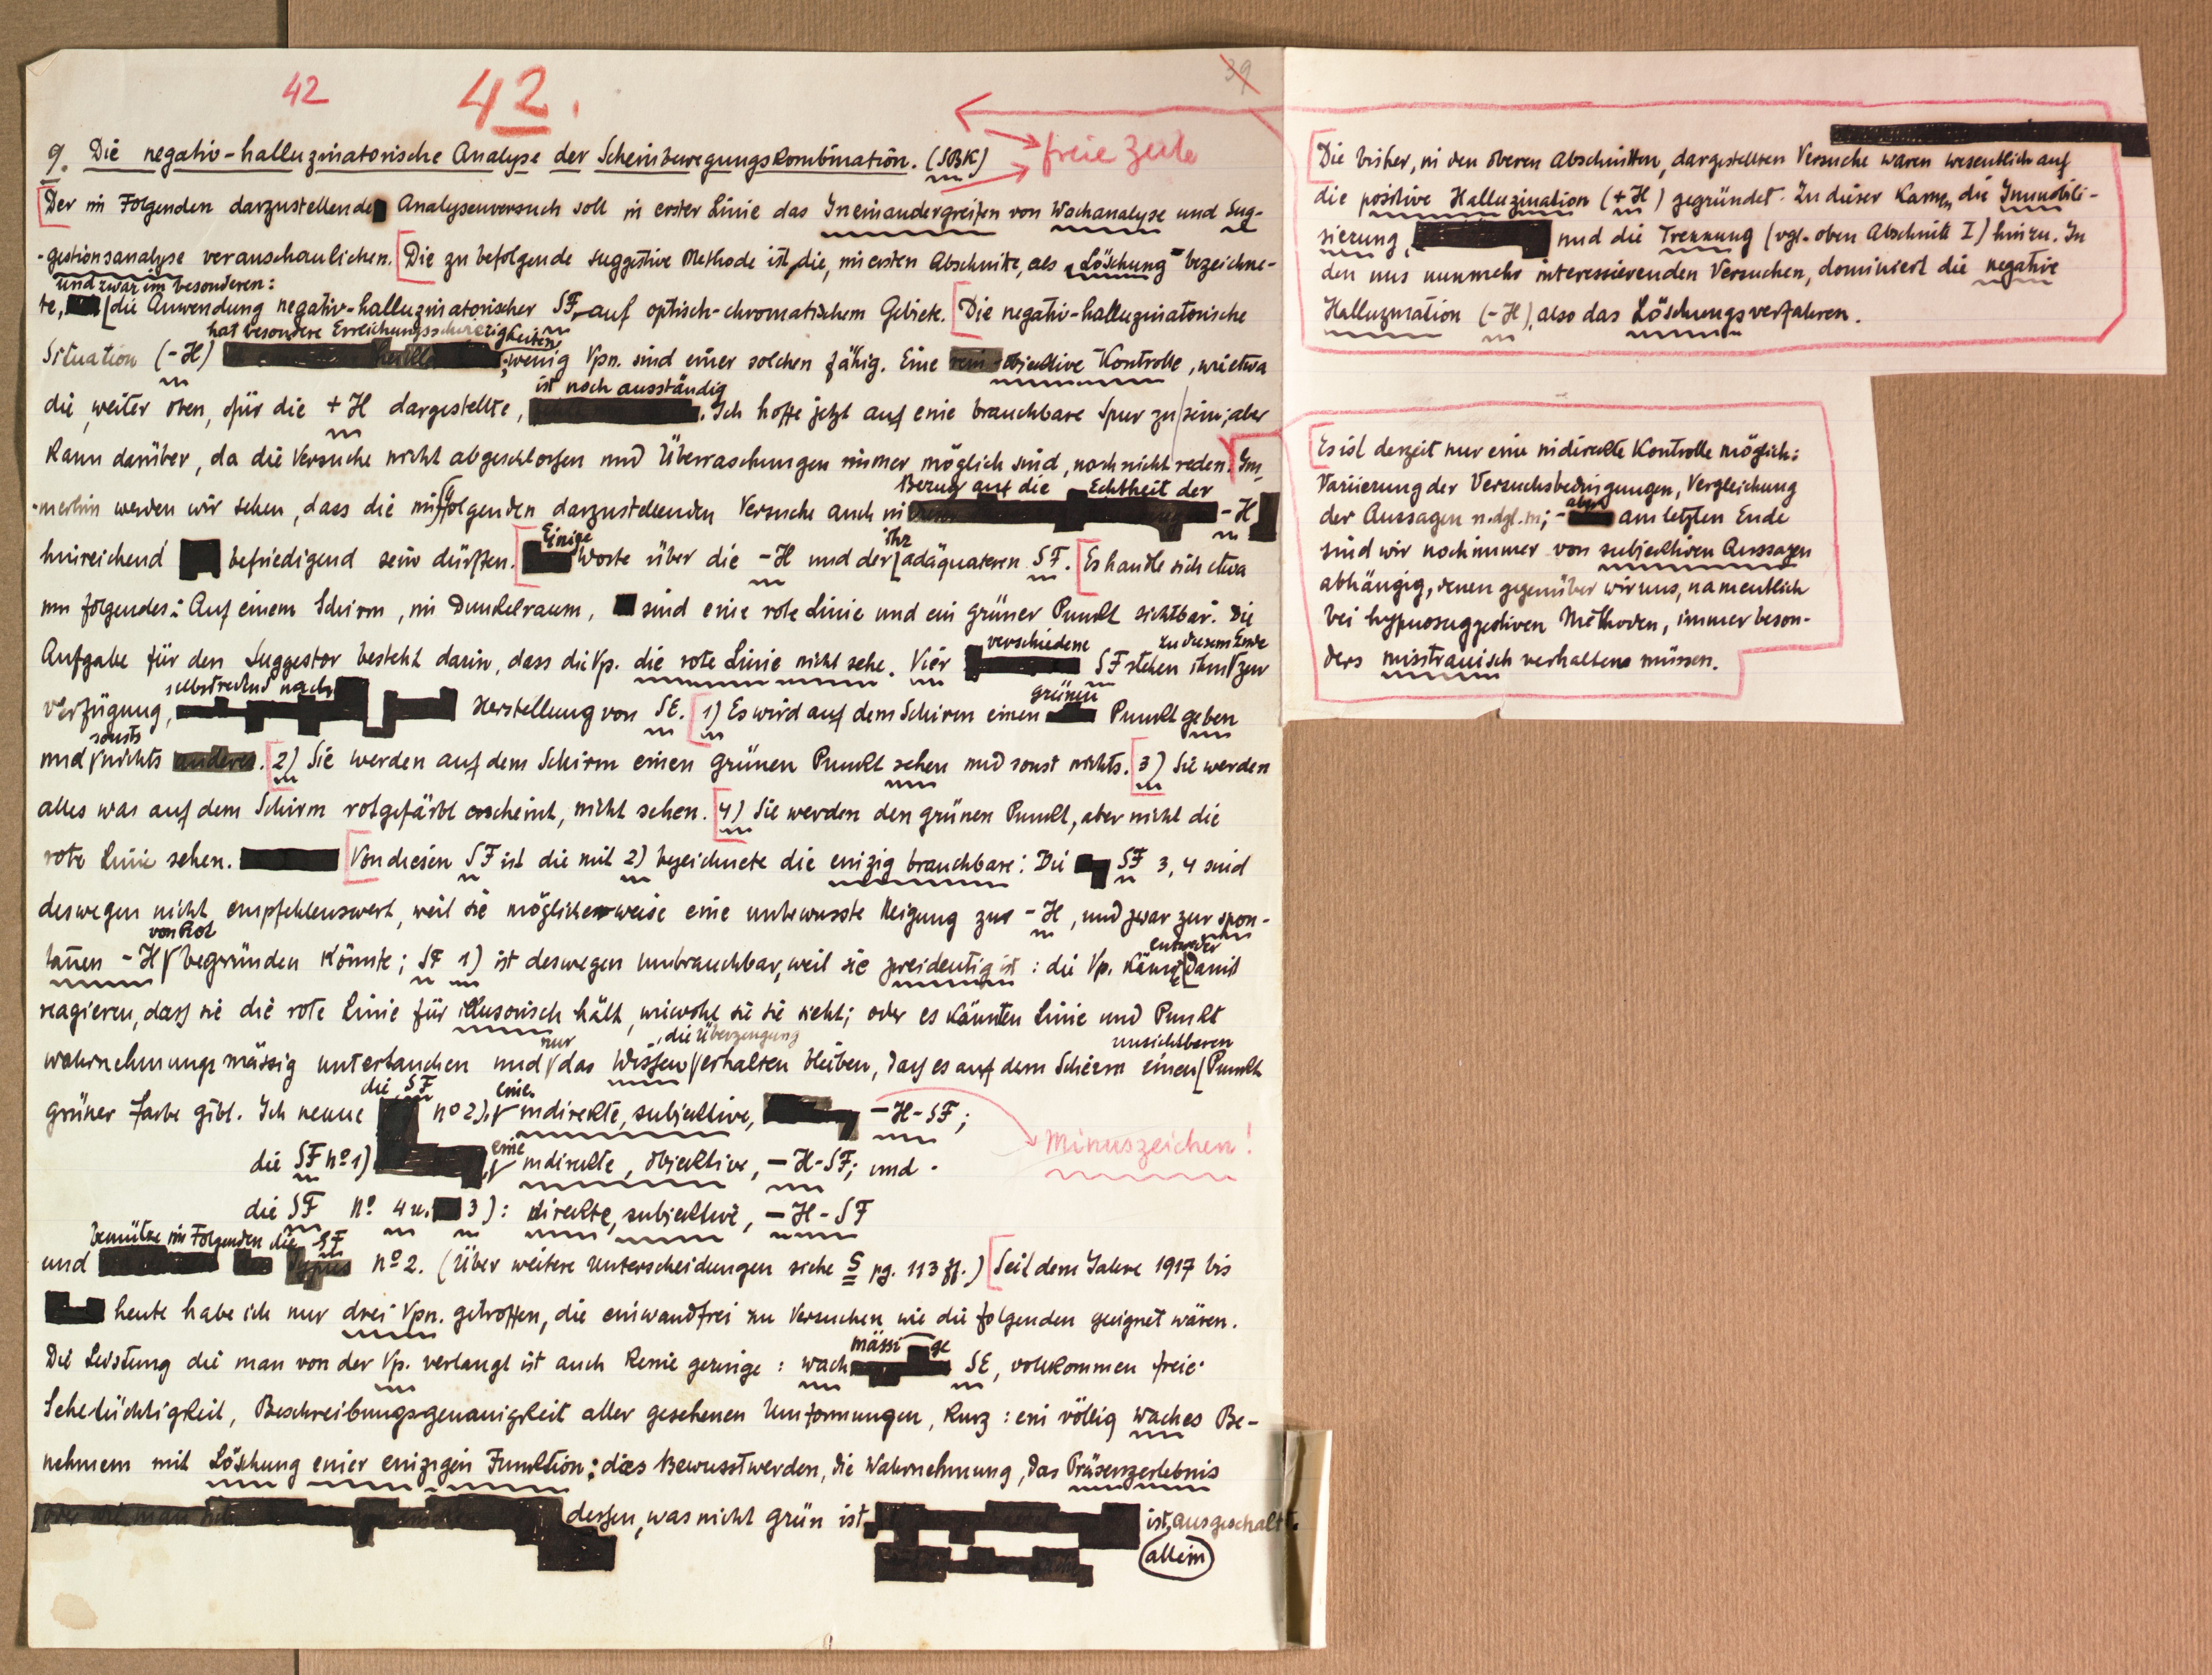 42
42.
39
9. Die negativ-halluzinatorische Analyse der Scheinbewegungskombination. (SBK)
freie Zeile
Der im Folgenden darzustellende Analysenversuch soll in erster Linie das Ineinandergreifen von Wachanalyse und Sug-
-gestionsanalyse veranschaulichen. Die zu befolgende suggestive Methode ist die, im ersten Abschnitte, als „Löschung" bezeichne-
und zwar im besonderen:
te, die Anwendung negativ-halluzinatorischer SF, auf optisch-chromatischem Gebiete. Die negativ-halluzinatorische
hat besondere Erreichungsschwierigkeiten
Situation (-H) ; wenig Vpn. sind einer solchen fähig. Eine objektive Kontrolle, wie etwa
ist noch ausständig
die, weiter oben, für die +H dargestellte, . Ich hoffe jetzt auf eine brauchbare Spur zu sein; aber
kann darüber, da die Versuche nicht abgeschlossen und Überraschungen immer möglich sind, noch nicht reden. Im-
Bezug auf die Echtheit der
-merhin werden wir sehen, dass die im folgenden darzustellenden Versuche auch in -H
Einige ihr
hinreichend befriedigend sein dürften. Worte über die -H und der adäquateren SF. Es handle sich etwa
um folgendes: Auf einem Schirm, im Dunkelraum, sind eine rote Linie und ein grüner Punkt sichtbar. Die
verschiedene zu diesem Ende
Aufgabe für den Suggestor besteht darin, dass die Vp. die rote Linie nicht sehe. Vier SF stehen ihm zur
selbstredend nach grünen
Verfügung, Herstellung von SE. 1) Es wird auf dem Schirm einen Punkt geben
sonst
und nichts anderes. 2) Sie werden auf dem Schirm einen grünen Punkt sehen und sonst nichts. 3) Sie werden
alles was auf dem Schirm rotgefärbt erscheint, nicht sehen. 4) Sie werden den grünen Punkt, aber nicht die
rote Linie sehen. Von diesen SF ist die mit 2) bezeichnete die einzig brauchbare: Die SF 3, 4 sind
deswegen nicht empfehlenswert, weil sie möglicherweise eine unbewusste Neigung zur -H, und zwar zur spon-
von Rot entweder
tanen -H begründen könnte; SF 1) ist deswegen unbrauchbar, weil sie zweideutig ist: die Vp. kann damit
reagieren, dass sie die rote Linie für illusorisch hält, wiewohl sie sie sieht; oder es könnten Linie und Punkt
nur , die Überzeugung unsichtbaren
wahrnehmungsmässig untertauchen und das Wissen erhalten bleiben, dass es auf dem Schirm einen Punkt
die SF eine
grüner Farbe gibt. Ich nenne no 2), indirekte, subjektive, -H-SF;
eine
die SF no 1) indirekte, objektive, -H-SF; und
Minuszeichen!
die SF no 4 u. 3): direkte, subjektive, -H-SF
benütze im Folgenden die SF
und no 2. (Über weitere Unterscheidungen siehe S pg. 113 ff.) Seit dem Jahre 1917 bis
heute habe ich nur drei Vpn. getroffen, die einwandfrei zu Versuchen wie die folgenden geeignet wären.
mässige
Die Leistung die man von der Vp. verlangt ist auch keine geringe: wach SE, vollkommen freie
Sehetüchtigkeit, Beschreibungsgenauigkeit aller gesehenen Umformungen, kurz: ein völlig waches Be-
nehmem mit Löschung einer einzigen Funktion: das Bewusstwerden, die Wahrnehmung, das Präsenzerlebnis
dessen, was nicht grün ist ist, ausgeschaltet.
allein
Die bisher, in den oberen Abschnitten, dargestellten Versuche waren wesentlich auf
die positive Halluzination (+H) gegründet. Zu dieser kamen, die Immobili-
sierung, und die Trennung (vgl. oben Abschnitt I) hinzu. In
den uns nunmehr interessierenden Versuchen, dominiert die negative
Halluzination (-H), also das Löschungsverfahren.
Es ist derzeit nur eine indirekte Kontrolle möglich:
Variierung der Versuchsbedingungen, Vergleichung
aber
der Aussagen u. dgl. m; - am letzten Ende
sind wir noch immer von subjektiven Aussagen
abhängig, denen gegenüber wir uns, namentlich
bei hypnosuggestiven Methoden, immer beson-
ders misstrauisch verhalten müssen.